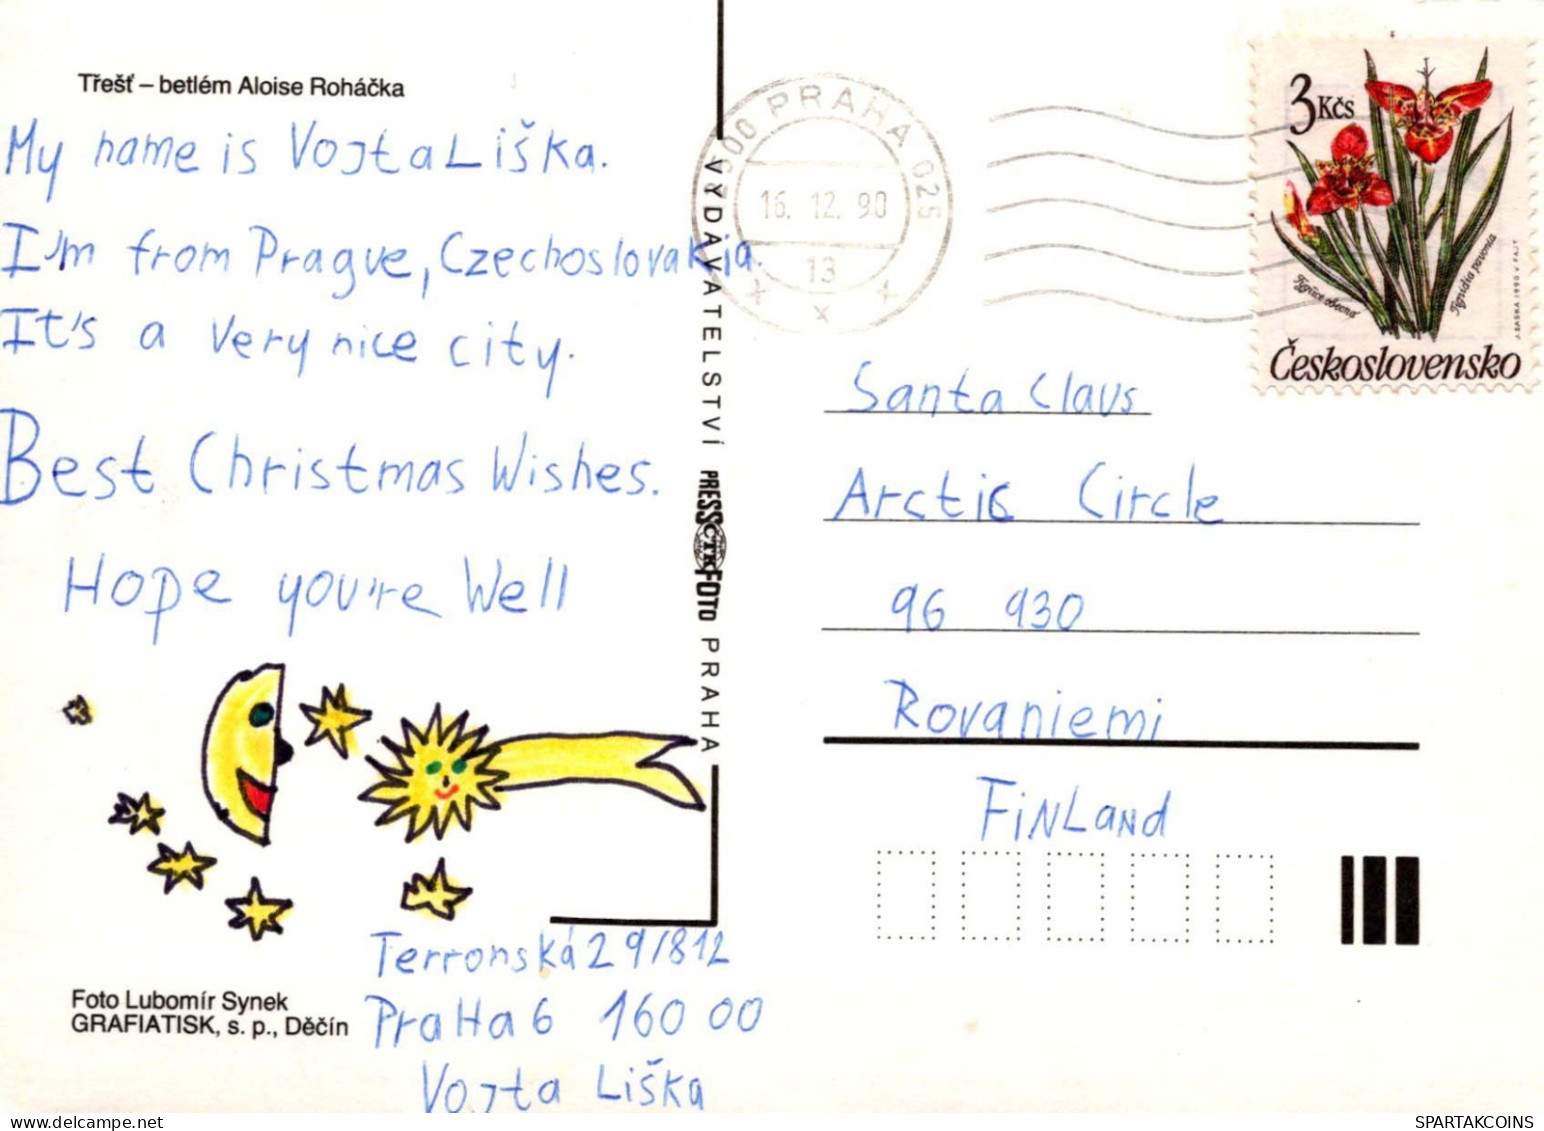 Třešť – betlém Aloise Roháčka
My name is Vojta Liška.
I'm from Prague, Czechoslovakia.
It's a very nice city.
Best Christmas Wishes.
Hope you're Well
Terronská 29/812
PraHa 6 160 00
Vojta Liška
Foto Lubomír Synek
GRAFIATISK, s. p., Děčín
VYDAVATELSTVÍ PRESSFOTO PRAHA
ČTK
PRAHA 025
16. 12. 90
13
3 Kčs
Tygridia pavonia
J. LIŠKA 1990 V. FAJT
Československo
Santa Claus
Arctic Circle
96 930
Rovaniemi
FiNLaNd
SPARTAKCOINS